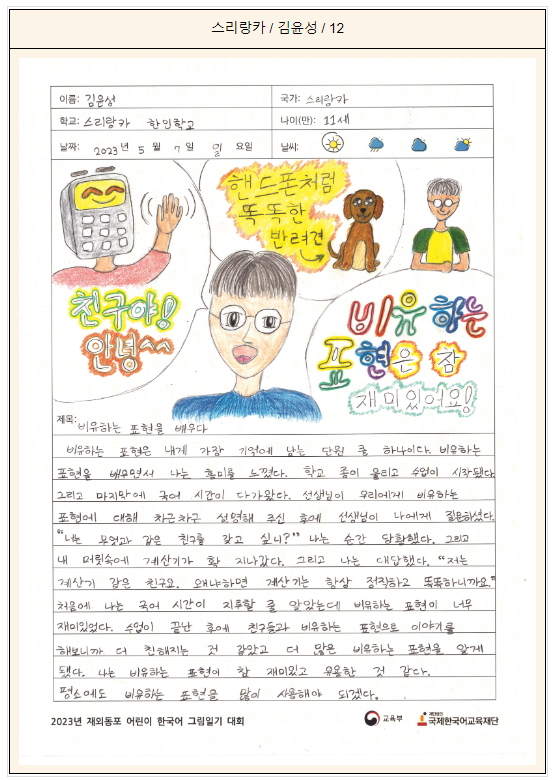 스리랑카 / 김윤성 / 12
이름: 김윤성
국가: 스리랑카
학교: 스리랑카 한인학교
나이(만): 11세
날짜: 2023년 5월 7일 일요일
날씨:
핸드폰처럼
똑똑한
반려견
친구야!
안녕^^
비유하는
표현은 참
재미있어요!
제목: 비유하는 표현을 배우다
비유하는 표현은 내게 가장 기억에 남는 단원 중 하나이다. 비유하는
표현을 배우면서 나는 흥미를 느꼈다. 학교 종이 울리고 수업이 시작됐다.
그리고 마지막에 국어 시간이 다가왔다. 선생님이 우리에게 비유하는
표현에 대해 차근차근 설명해 주신 후에 선생님이 나에게 질문하셨다.
"너는 무엇과 같은 친구를 갖고 싶니?" 나는 순간 당황했다. 그리고
내 머릿속에 계산기가 확 지나갔다. 그리고 나는 대답했다. "저는
계산기 같은 친구요. 왜냐하면 계산기는 항상 정직하고 똑똑하니까요."
처음에 나는 국어 시간이 지루할 줄 알았는데 비유하는 표현이 너무
재미있었다. 수업이 끝난 후에 친구들과 비유하는 표현으로 이야기를
해보니까 더 친해지는 것 같았고 더 많은 비유하는 표현을 알게
됐다. 나는 비유하는 표현이 참 재미있고 유용한 것 같다.
평소에도 비유하는 표현을 많이 사용해야 되겠다.
2023년 재외동포 어린이 한국어 그림일기 대회
교육부
재단법인
국제한국어교육재단